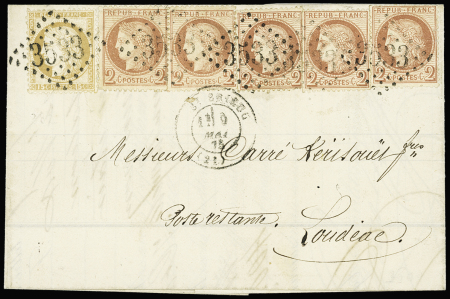 REPUB·FRANC REPUB·FRANC REPUB·FRANC REPUB·FRANC REPUB·FRANC
3533 3533 3533
2 POSTES 2 2 POSTES 2 2 POSTES 2 2 POSTES 2 2 POSTES 2
ST BRIEUC
MAI
75
(21)
Messieurs Carré Kérisouët frs
Poste restante.
Loudéac.